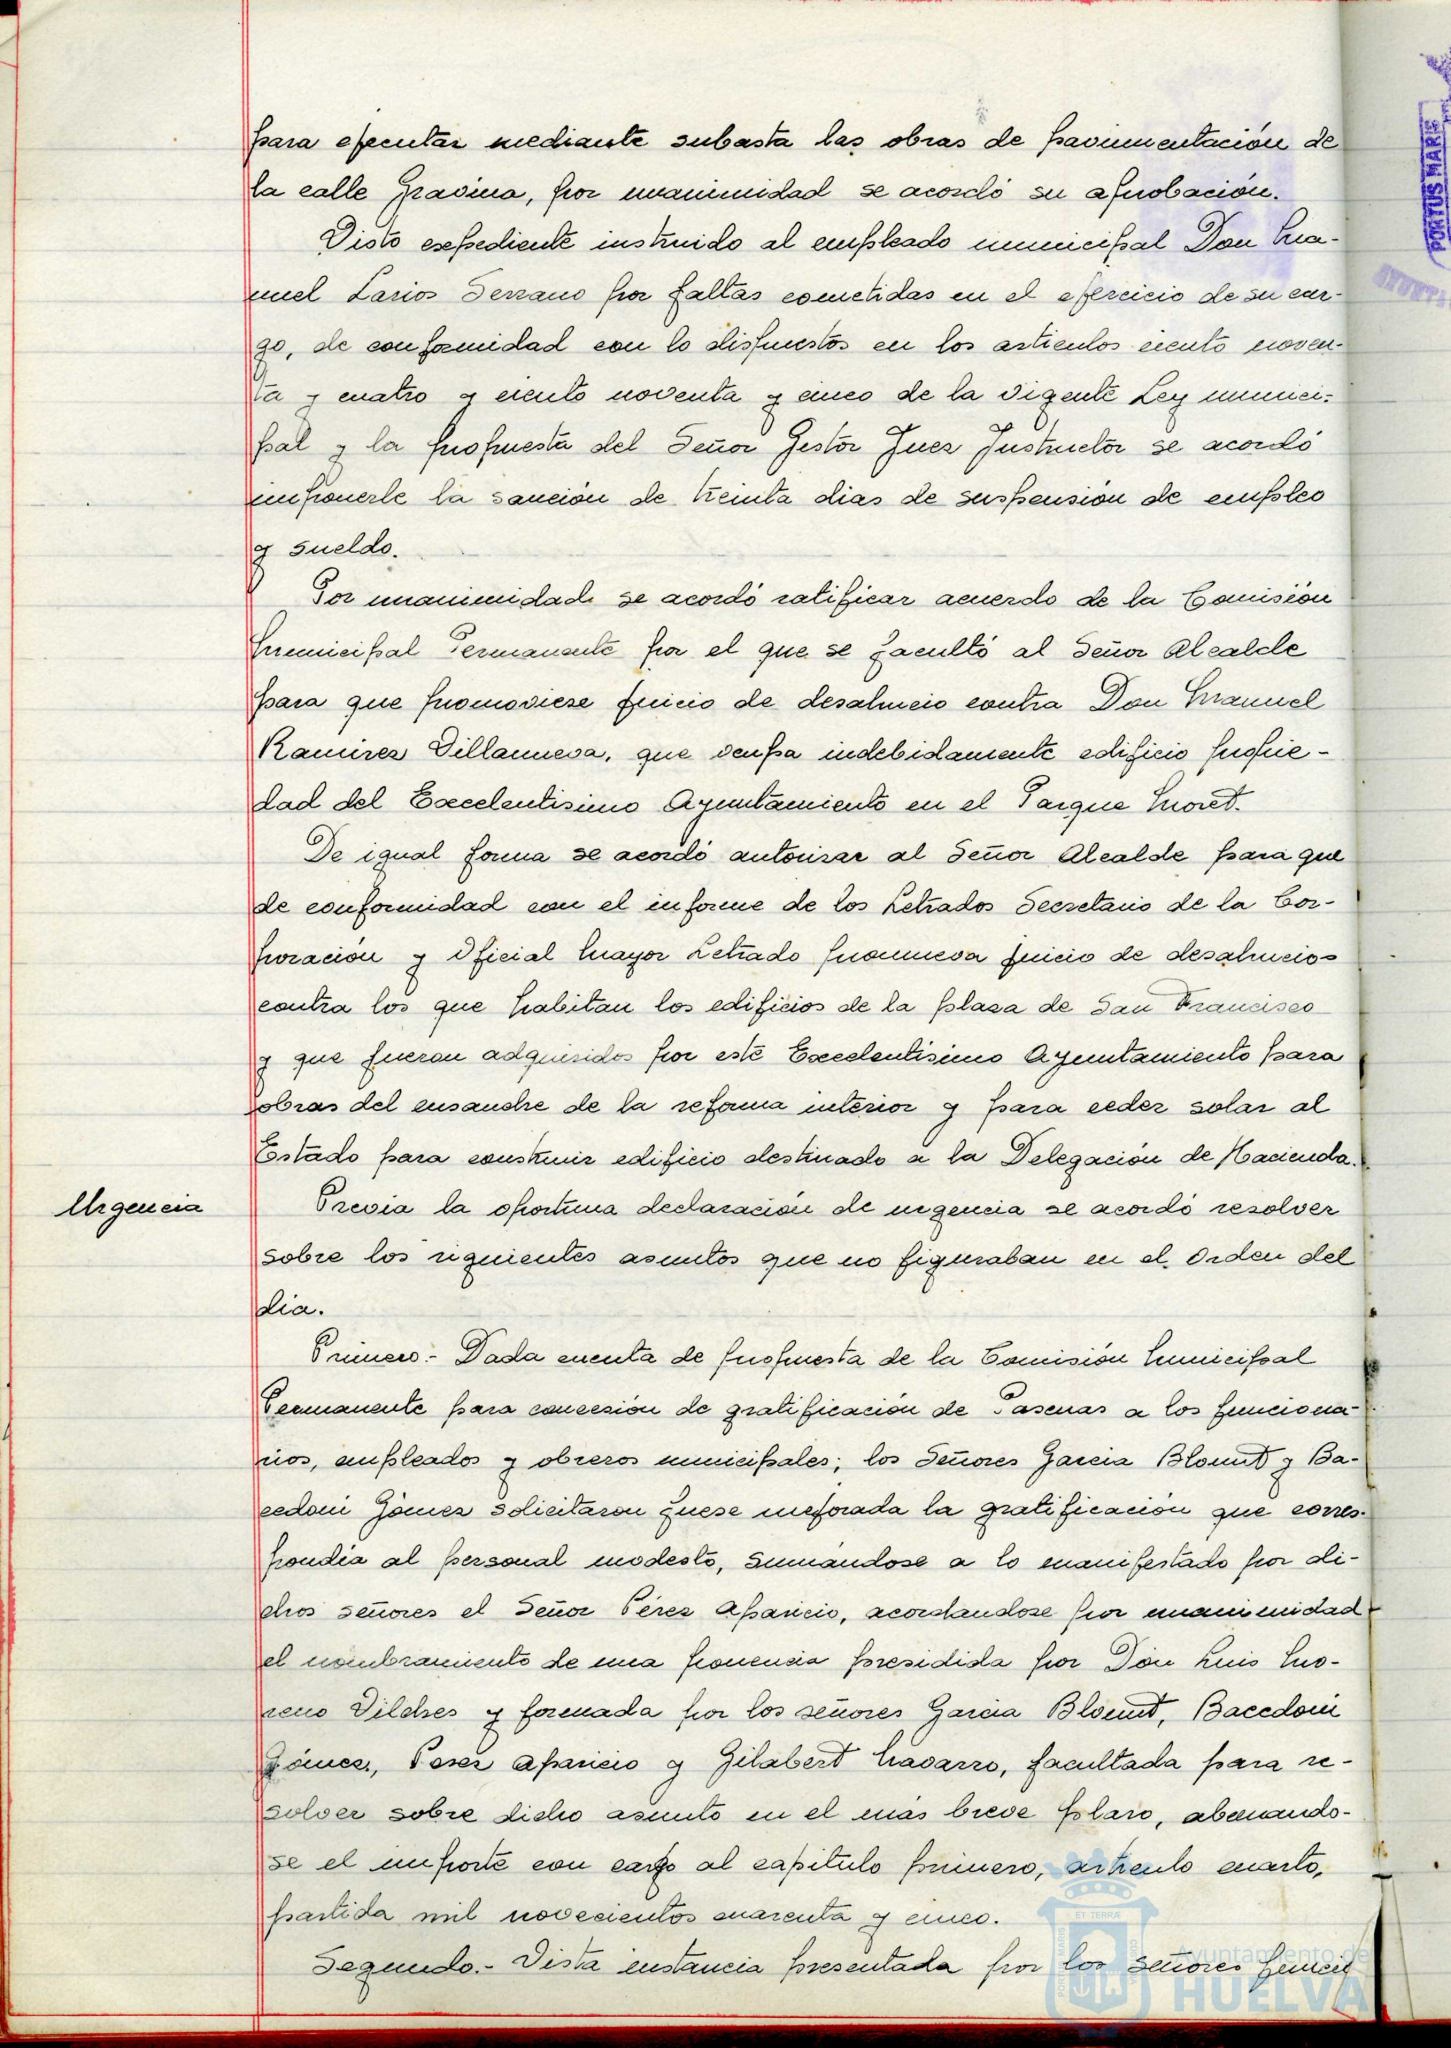 para ejecutar mediante subasta las obras de pavimentación de
la calle Gravina, por unanimidad se acordó su aprobación.
Visto expediente instruido al empleado municipal Don Ma-
nuel Larios Serrano por faltas cometidas en el ejercicio de su car-
go, de conformidad con lo dispuestos en los artículos ciento noven-
ta y cuatro y ciento noventa y cinco de la vigente Ley munici-
pal y la propuesta del Señor Gestor Juez Instructor se acordó
imponerle la sanción de treinta dias de suspensión de empleo
y sueldo.
Por unanimidad se acordó ratificar acuerdo de la Comisión
Municipal Permanente por el que se facultó al Señor Alcalde
para que promoviese juicio de desahucio contra Don Manuel
Ramirez Villanueva, que ocupa indebidamente edificio propie-
dad del Excelentisimo Ayuntamiento en el Parque Moret.
De igual forma se acordó autorizar al Señor Alcalde para que
de conformidad con el informe de los Letrados Secretario de la Cor-
poración y Oficial Mayor Letrado promueva juicio de desahucios
contra los que habitan los edificios de la plaza de San Francisco
y que fueron adquiridos por este Excelentisimo Ayuntamiento para
obras del ensanche de la reforma interior y para ceder solar al
Estado para construir edificio destinado a la Delegación de Hacienda.
Urgencia
Previa la oportuna declaración de urgencia se acordó resolver
sobre los siguientes asuntos que no figuraban en el Orden del
dia.
Primero.- Dada cuenta de propuesta de la Comisión Municipal
Permanente para concesión de gratificación de Pascuas a los funciona-
rios, empleados y obreros municipales; los Señores Garcia Blount y Ba-
cedoni Gómez solicitaron fuese mejorada la gratificación que corres-
pondía al personal modesto, sumándose a lo manifestado por di-
chos señores el Señor Pérez Aparicio, acordandose por unanimidad
el nombramiento de una ponencia presidida por Don Luis Mo-
reno Vilches y formada por los señores Garcia Blount, Bacedoni
Gómez, Perez Aparicio y Gilabert Navarro, facultada para re-
solver sobre dicho asunto en el más breve plazo, abonando-
se el importe con cargo al capitulo primero, artículo cuarto,
partida mil novecientos cuarenta y cinco.
Segundo.- Vista instancia presentada por los señores
PORTUS MARIS
Ayuntamiento de
HUELVA